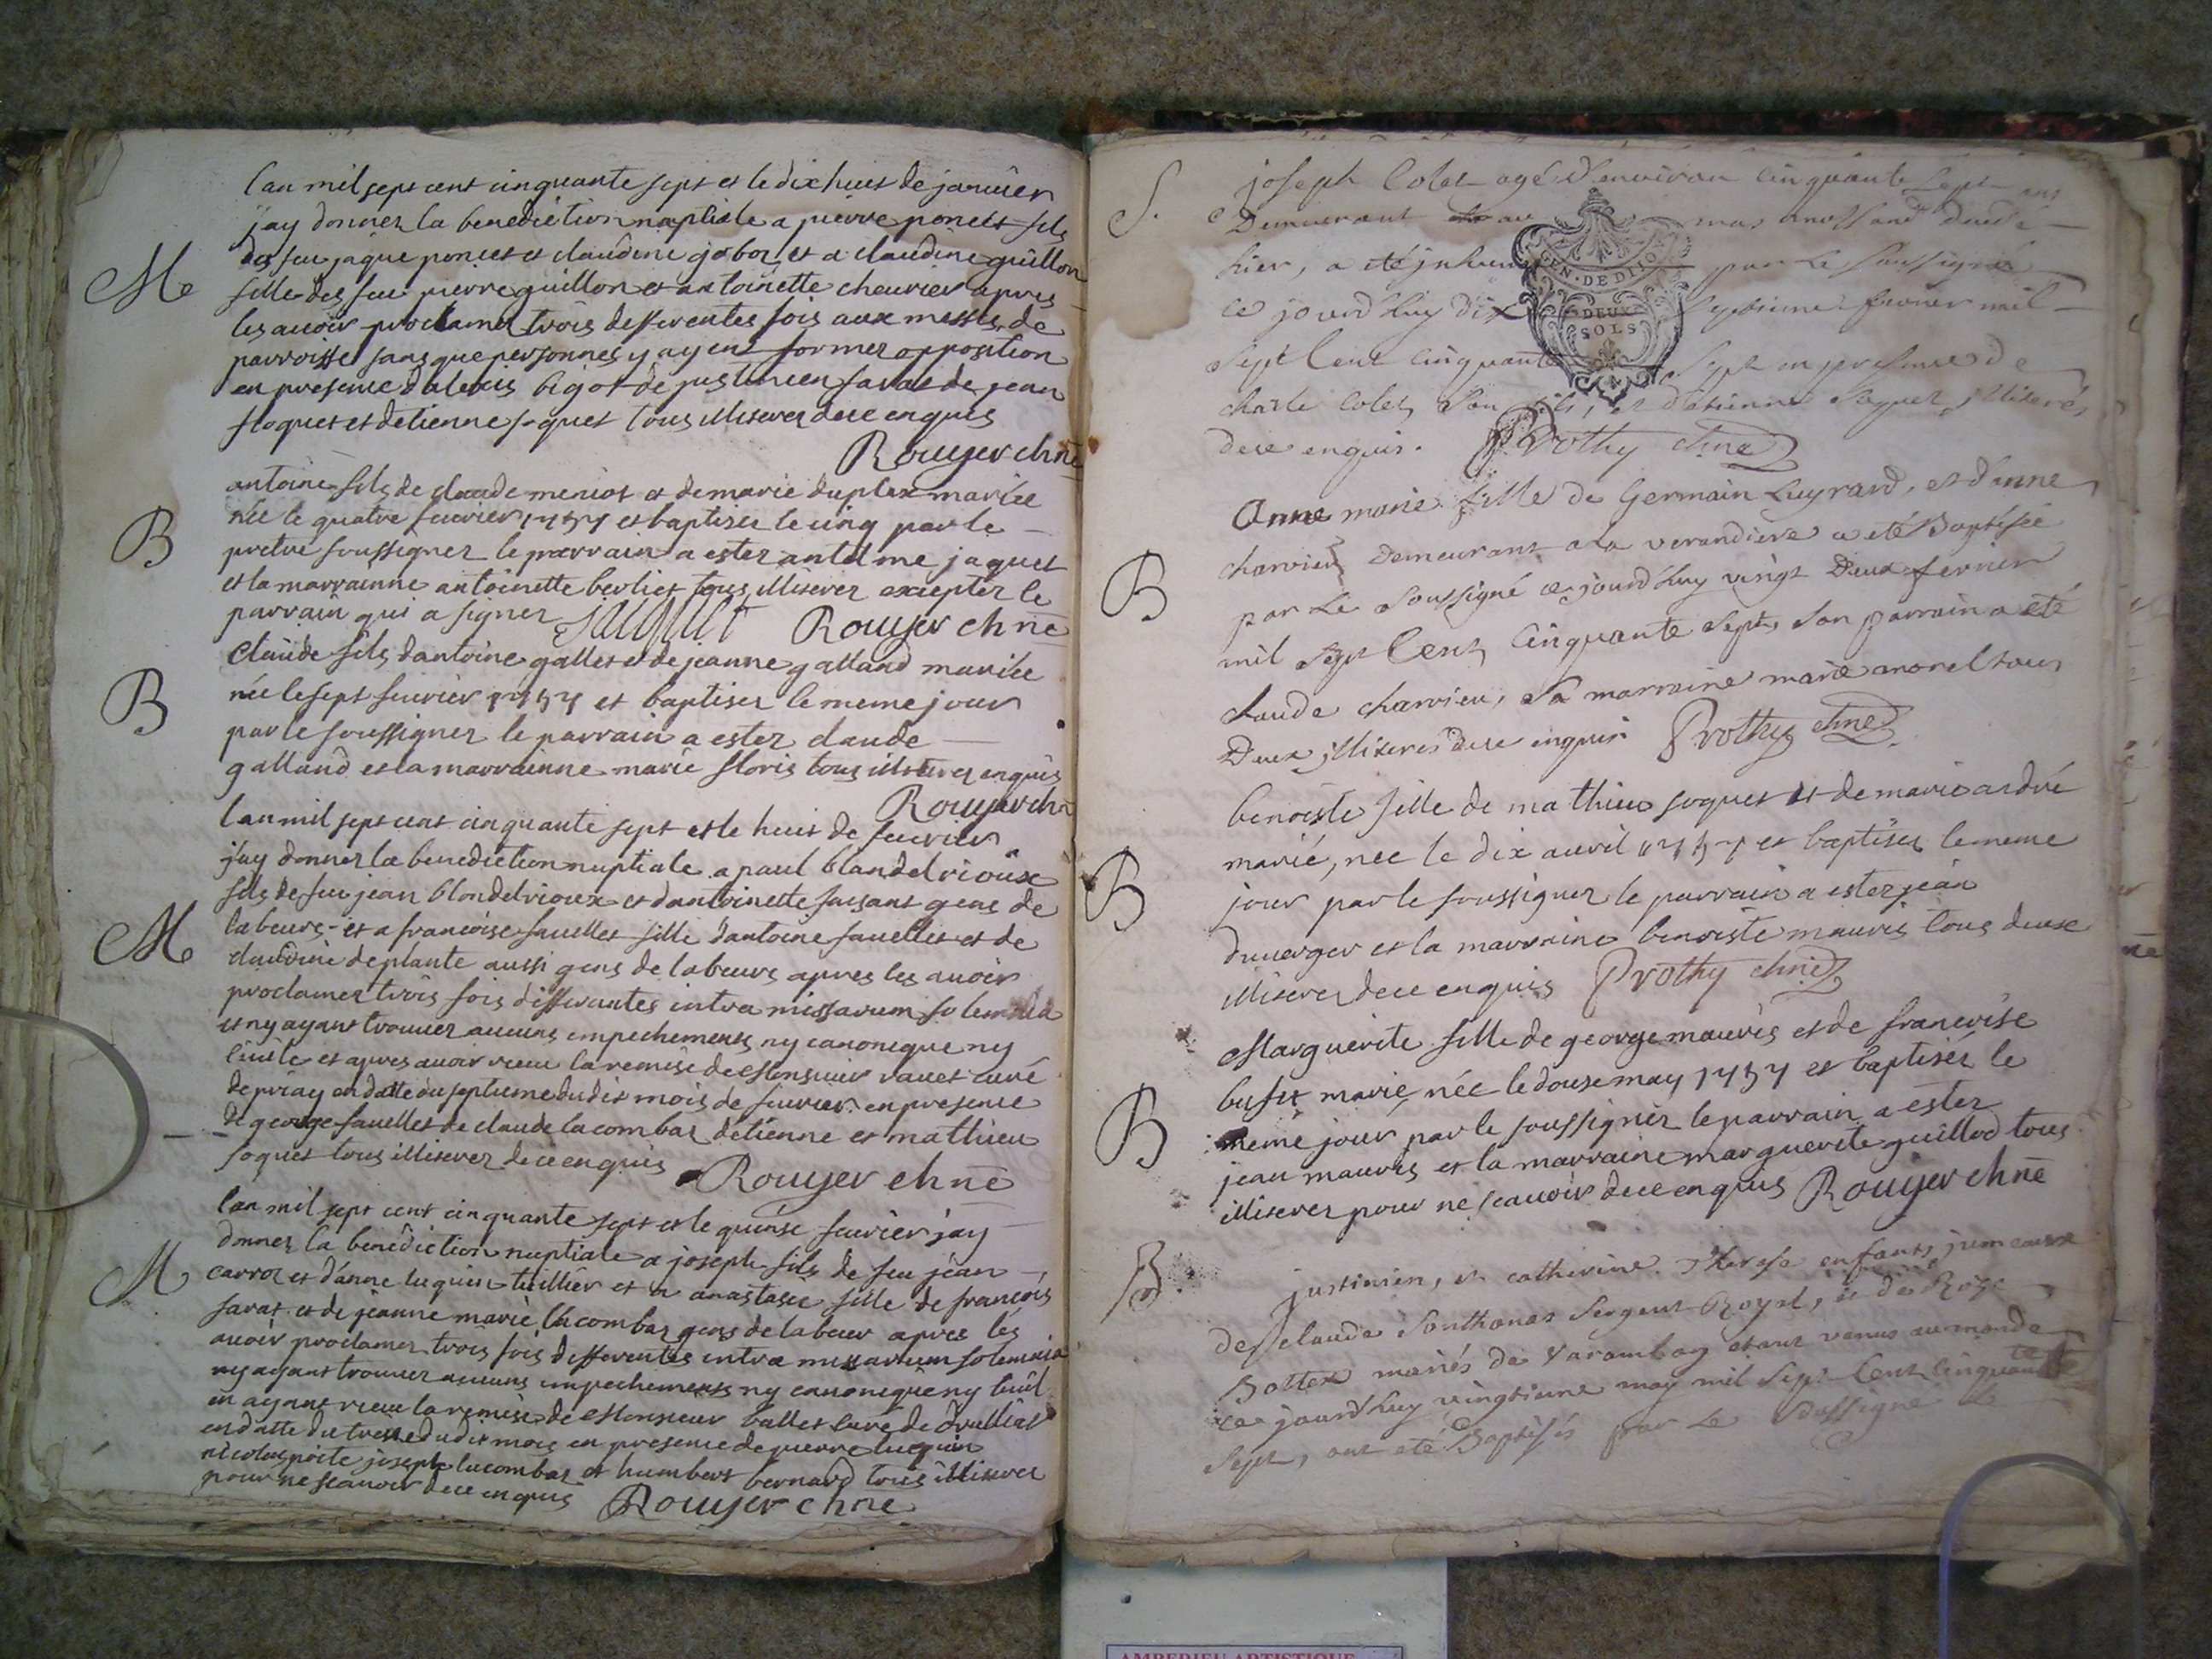 lan mil sept cent cinquante sept et le dix huit de januier
j'ay donner la benediction nuptiale a pierre poncet fils
des feu jaque poncet et claudine jobor et a claudine guillon
M
fille des feu pierre guillon et antoinette cheurier apres
les auoir proclamer trois defferentes fois aux messes de
parroisse sans que personnes y ayent former opposition
en presence d'alexis bigot de justinien sarat de jean
soquet et detienne soquet tous illiserer de ce enquis
Rouyer chne
antoine fils de claude meniot et de marie duplex mariee
née le quatre feuvrier 1757 et baptiser le cinq par le
B
pretre soussigner le parrain a ester antelme jaquet
et la marrainne antoinette berliet tous illiserer exiepter le
parrain qui a signer Jacquet Rouyer chne
Claude fils dantoine gallet et de jeanne galland mariée
B
née le sept feuvrier 1757 et baptiser le meme jour
par le soussigner le parrain a ester claude
galland et la marrainne marie floris tous illiserer enquis
Rouyer chne
lan mil sept cent cinquante sept et le huit de feuvrier
j'ay donner la benediction nuptiale a paul blandelrioux
fils de feu jean blondelrioux et dantoinette faisant gens de
M
labeurs et a francoise sauellet fille dantoine sauellet et de
claudine deplante aussi gens de labeurs apres les auoir
proclamer trois fois differantes intra missarum solemnia
et ny ayant trouuer aucuns empechements ny canoneque ny
ciuile et apres auoir recu la remise de Monsieur rauet curé
de priay en datte du septieme dudit mois de feuvrier en presence
de george sauellet de claude lacombas detienne et mathieu
soquet tous illiserer de ce enquis Rouyer chne
lan mil sept cent cinquante sept et le quinse feuvrier jay
donner la benediction nuptiale a joseph fils de feu jean
M
carroz et d'anne luquin tuillier et a anastasie fille de francois
sarat et de jeanne marie lacombas gens de labeur apres les
auoir proclamer trois fois defferentes intra missarum solemnia
ny ayant trouuer aucuns empechements ny canoneque ny ciuil
en ayant recu la remise de Monsieur ballet curé de druillat
en datte du treise dudit mois en presence de pierre luquin
nicolas poite joseph lacombas et humbert bernard tous illiserer
pour ne scauoir de ce enquis Rouyer chne
S.
joseph Colet agé d'environ cinquante sept ans
Demeurant au mas
hier, a eté inhumé par le soussigné
ce jourd'huy dix septieme fevrier mil
GEN. DE DIJON
DEUX SOLS
sept Cent cinquante sept en presence de
charle Colet, son fils, et d'etienne Soquet illiterés
de ce enquis. Prothy chne
Anne marie fille de Germain Luyrard, et d'anne
charvieu Demeurant a la verandiere a eté Baptisée
B
par le soussigné ce jourd'huy vingt Deux fevrier
mil sept Cent Cinquante sept, son parrain a eté
claude charvieu, sa marraine marie morel tous
Deux illiterés de ce enquis Prothy chne
benoiste fille de mathieu soquet et de marie andré
marié, nee le dix auril 1757 et baptiser le meme
B
jour par le soussigner le parrain a ester jean
duuerger et la marraine benoiste mauris tous deux
illiserer de ce enquis Prothy chne
Marguerite fille de george mauris et de francoise
bufet marié née le douse may 1757 et baptisér le
B
meme jour par le soussigner le parrain a ester
jean mauris et la marraine marguerite guillod tous
illiserer pour ne scauoir de ce enquis Rouyer chne
B.
justinien, et catherine Therese enfants jumeaux
de claude Sonthonax Sergent Royal, et de Roze
Bottex mariés de Varambon etant venus au monde
ce jourd'huy vingtieme may mil sept Cent cinquante
sept, ont eté Baptisés par le soussigné
AMBERIEU ARTISTIQUE